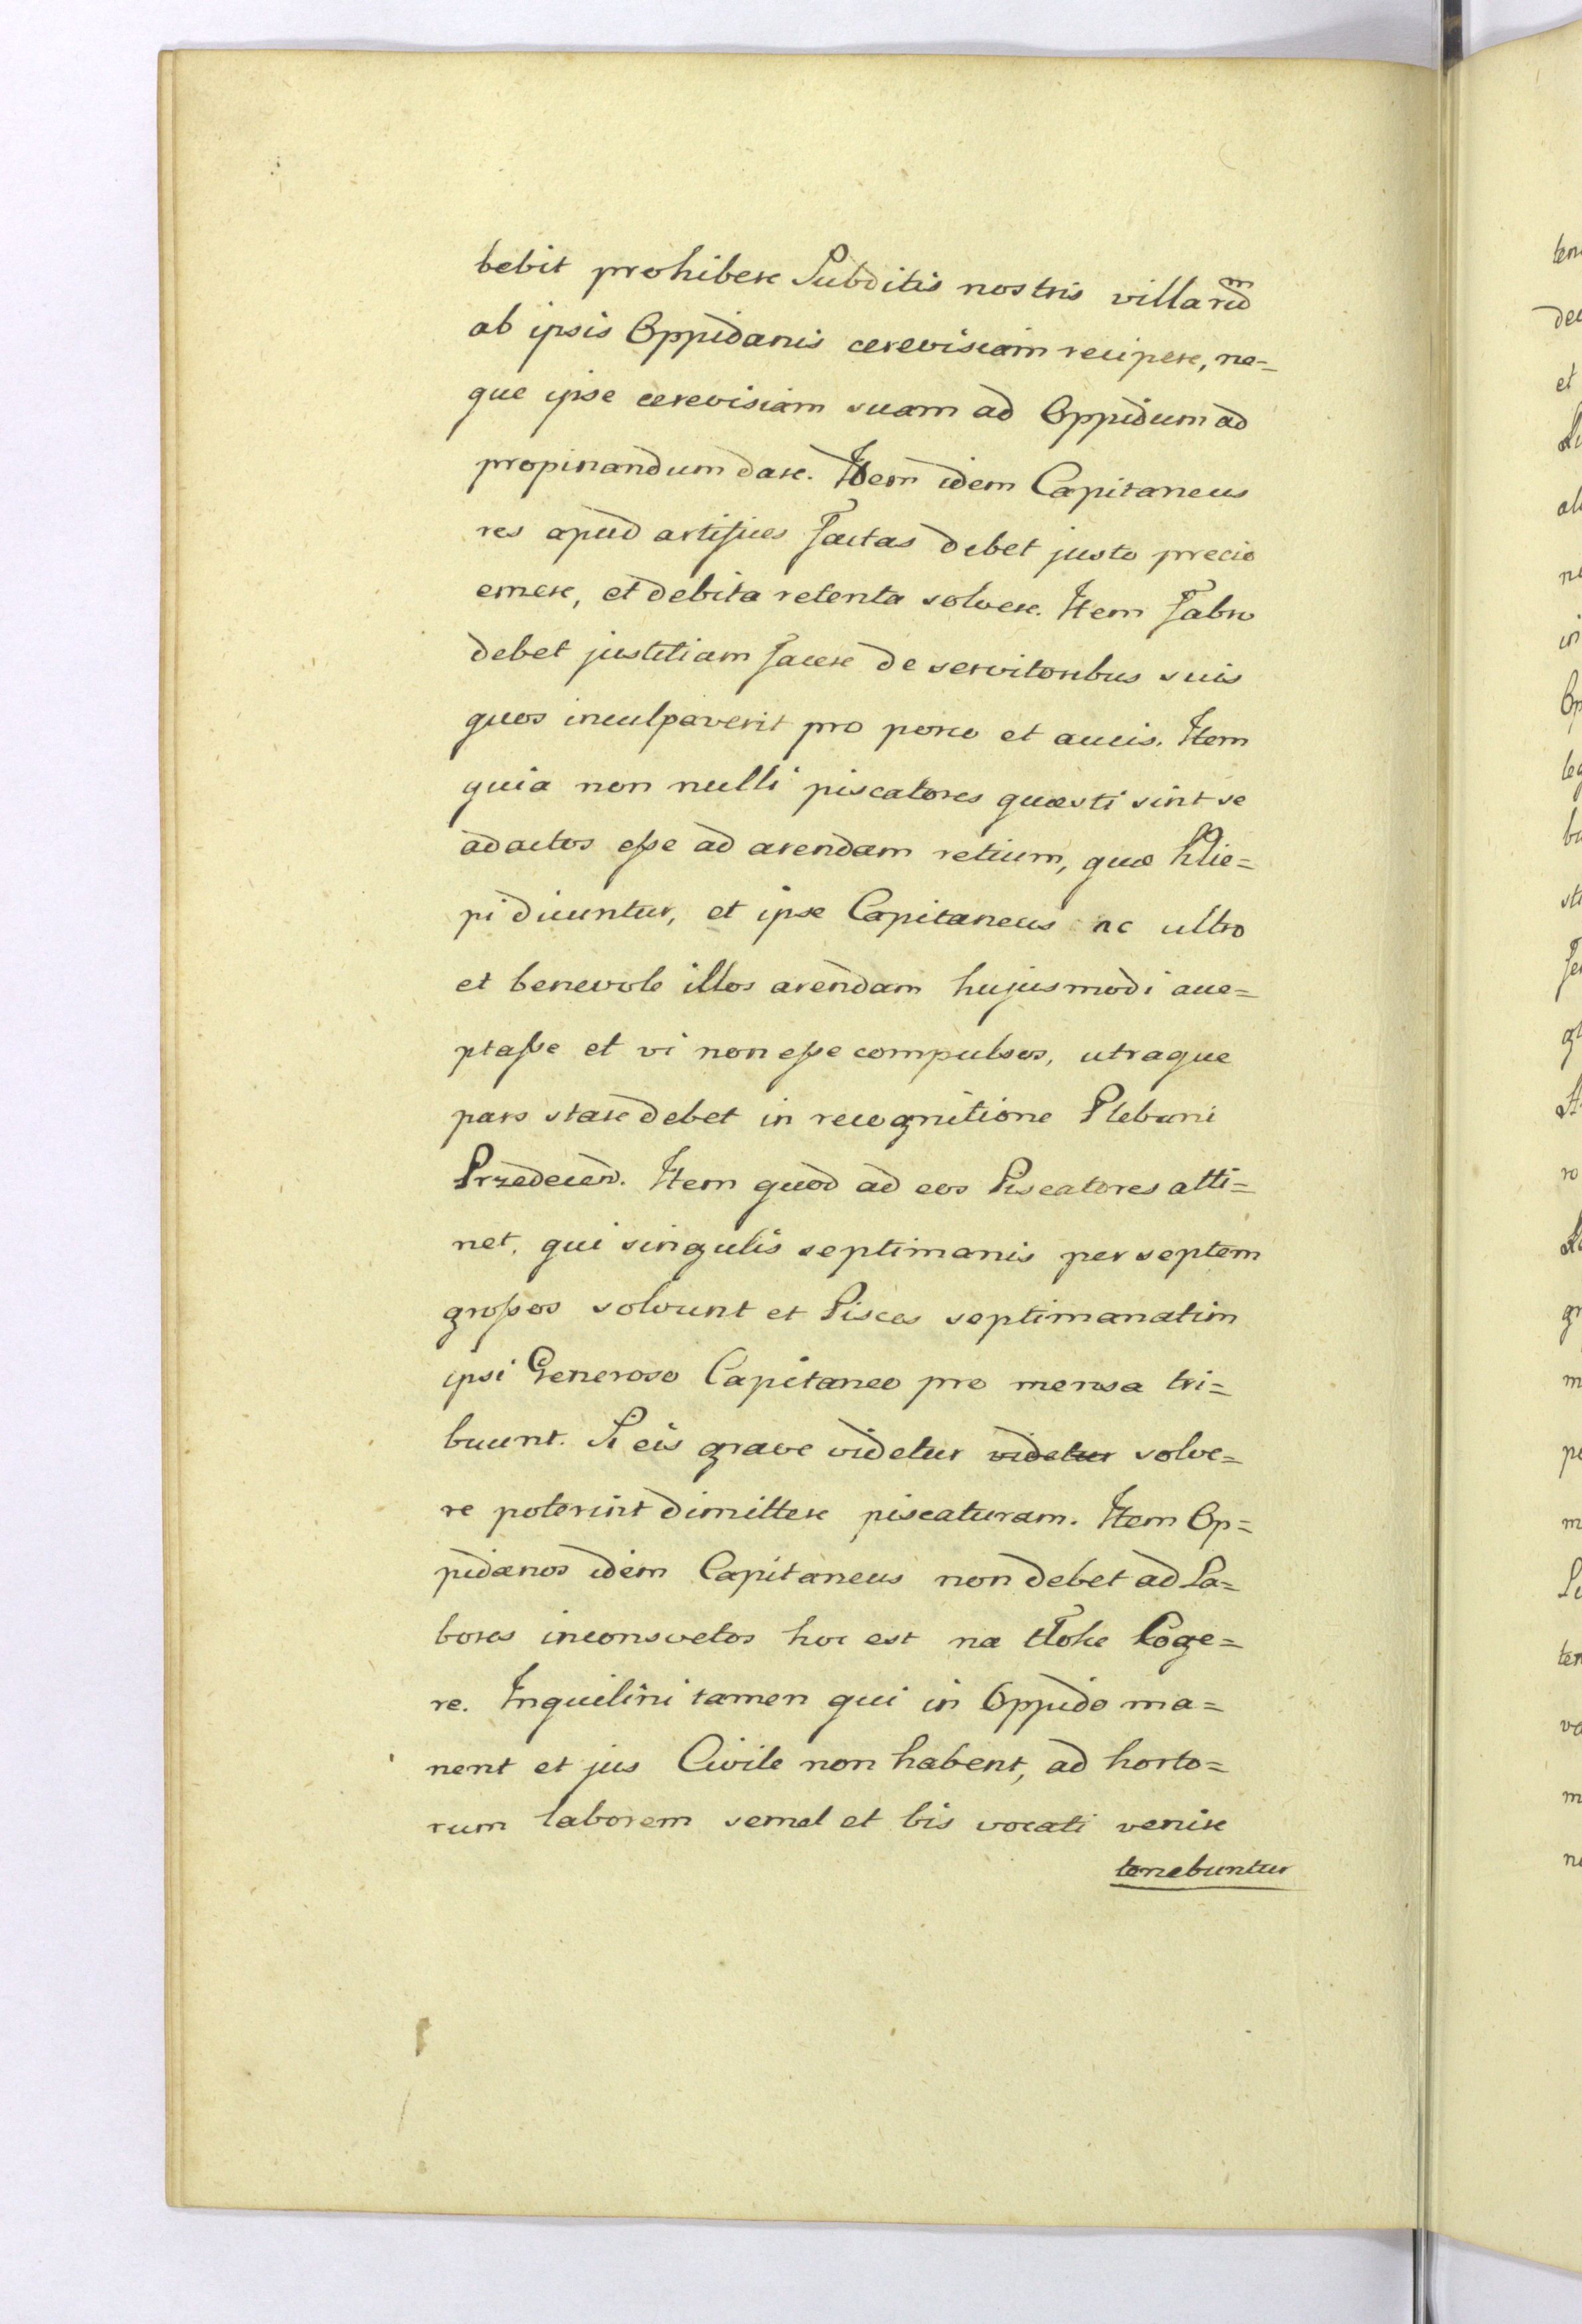 bebit prohibere Subditis nostris villarum
ab ipsis Oppidanis cerevisiam recipere, ne=
que ipse cerevisiam suam ad Oppidum ad
propinandum dare. Item idem Capitaneus
res apud artifices factas debet justo precio
emere, et debita retenta solvere. Item Fabro
debet justitiam facere de servitoribus suis
quos inculpaverit pro porco et aucis. Item
quia non nulli piscatores quaesti sint se
adactos esse ad arendam retium, quae Klie=
pi dicuntur, et ipse Capitaneus ac ultro
et benevole illos arendam hujusmodi acce=
ptasse et vi non esse compulsos, utraque
pars stare debet in recognitione Plebani
Przedecen. Item quod ad eos Piscatores atti=
net, qui singulis septimanis per septem
grossos solvunt et Pisces septimanatim
ipsi Generoso Capitaneo pro mensa tri=
buunt. Si eis grave videtur videtur solve=
re poterint dimittere piscaturam. Item Op=
pidanos idem Capitaneus non debet ad La=
bores inconsvetos hoc est na tłoke Coge=
re. Inquilini tamen qui in Oppido ma=
nent et jus Civile non habent, ad horto=
rum laborem semel et bis vocati venire
tenebuntur